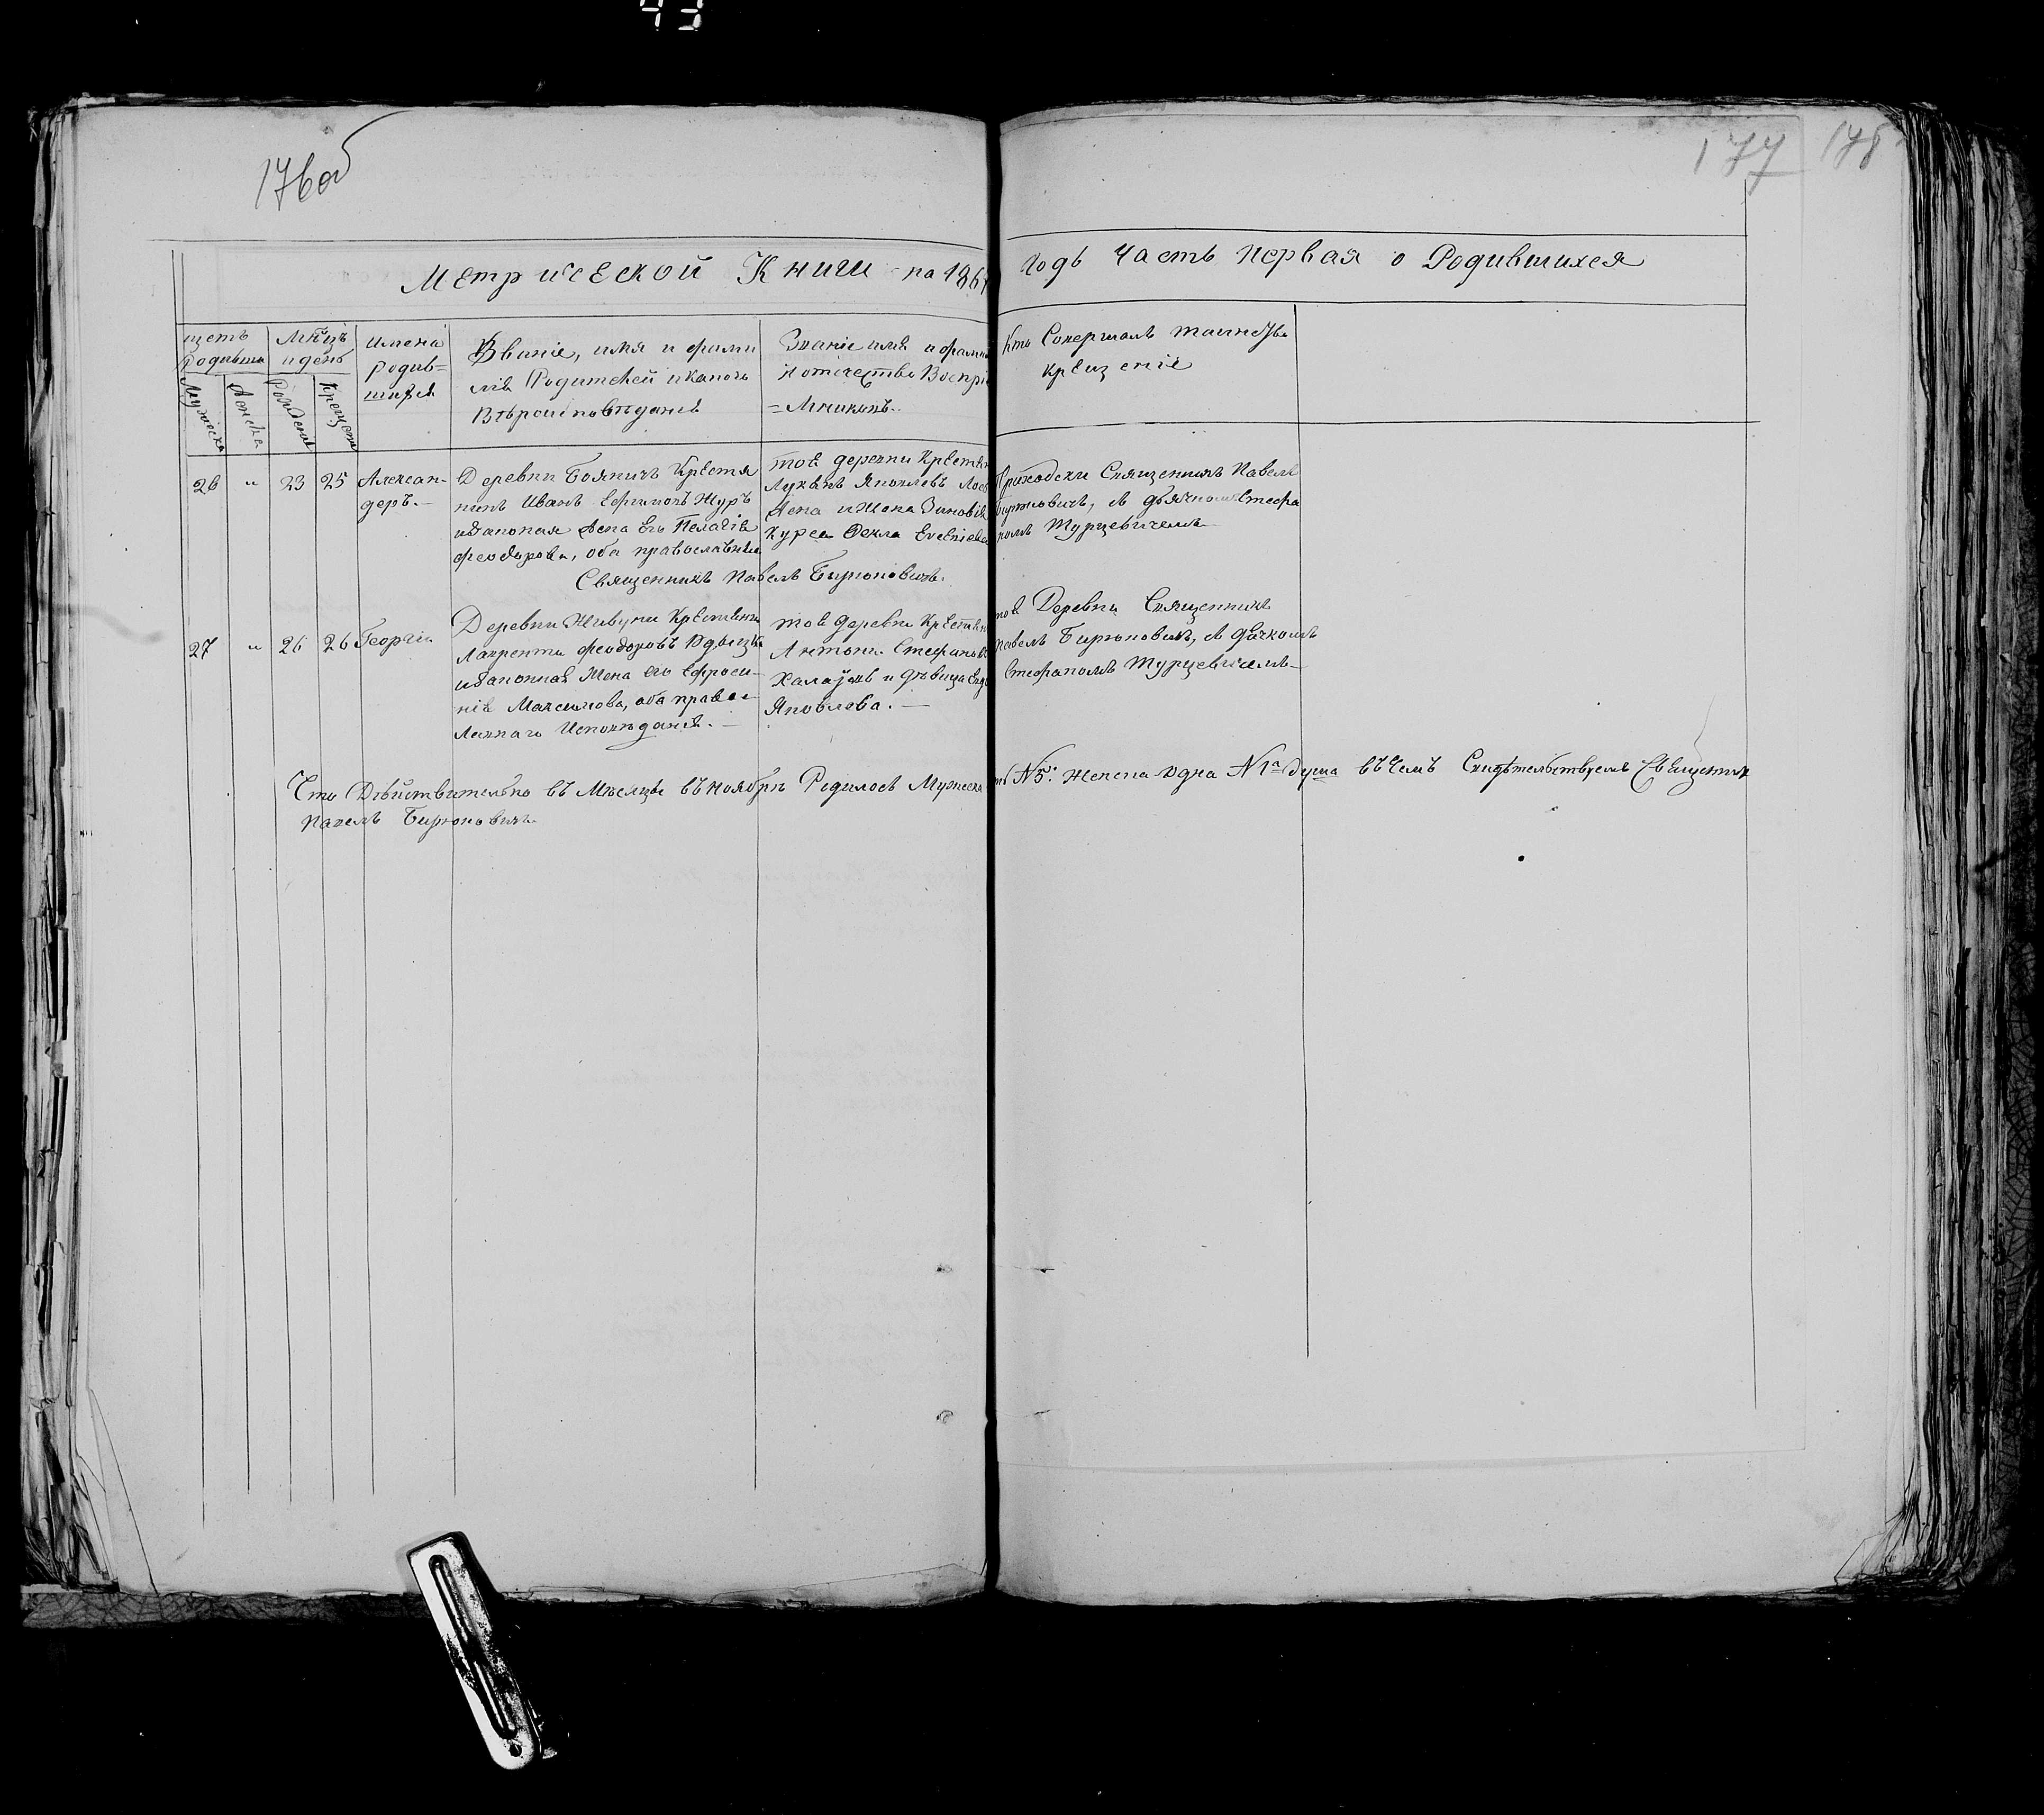 43
176об
177 178
Метрической Книги на 186 Годъ Часть Первая о Родившихся
щетъ родивши
Мужеска
Женска
Мѣцъ и день
Рожденія
Крещенія
имена
родив=
шихся
Званіе, имя и фами
лія Родителей и какого
Вѣроисповѣданія
Званіе имя и фамил
и отечество Воспрі
=Мниковъ.
Кто Совершалъ таинство
крещеніе
26 " 23 25
Алексан-
деръ.—
Деревни Бояничъ Крестья
нинъ Иванъ Ефимовъ Журъ
изаконная Жена Его Пелагія
Феодорова, оба православныи
Священникъ Павелъ Бирюковичъ.
тоя деревни Крестьян
Лукьянъ Яковлевъ
и Жена Зиновія
Курса Фекла
Приходски Священникъ Павелъ
Бирюковичъ, съ дьячкомъ Стефа
номъ Турцевичемъ
27 " 26 26
Георгіи
Деревни Живуни Крестьянин
Лаврентіи Феодоровъ
изаконная Жена его Ефроси-
нія Максимова, оба право-
лавнаго Исповѣданія.—
тоя деревни Крестьян
Антони Стефановъ
и дѣвица Евд
Яковлева.—
тоя Деревни Священникъ
Павелъ Бирюковичъ, съ дячкомъ
Стефаномъ Турцевичемъ—
Что Дѣйствительно въ Мѣсяцѣ въ ноябрѣ Родилось Мужеска N5. женска одна N1а душа въ чемъ Свидѣтельствуемъ Священник
Павелъ Бирюковичъ.